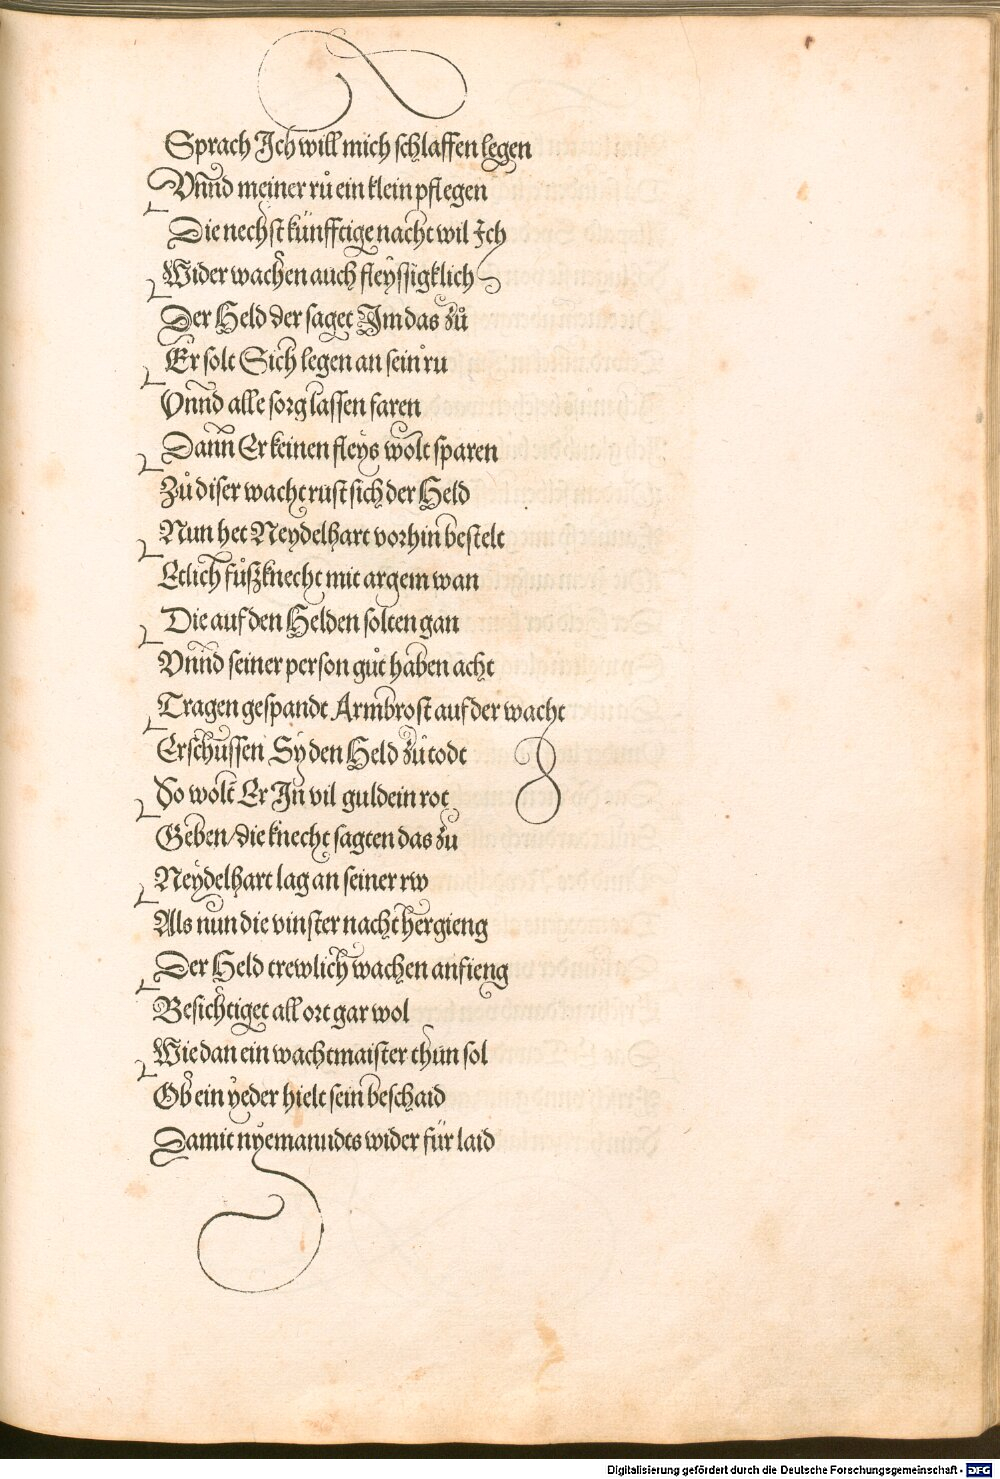 Sprach Ich will mich schlaffen legen
Vnnd meiner rů ein klein pflegen
Die nechst künfftige nacht wil Ich
Wider wachen auch fleyssigklich
Der Held der saget Im das zů
Er solt Sich legen an sein rů
Vnnd alle sorg lassen faren
Dann Er keinen fleys wolt sparen
Zů diser wacht rust sich der Held
Nun het Neydelhart vorhin bestelt
Etlich fůßknecht mit argem wan
Die auf den Helden solten gan
Vnnd seiner person gůt haben acht
Tragen gespandt Armbrost auf der wacht
Erschussen Sy den Held zů todt
So wolt Er In vil guldein rot
Geben / die knecht sagten das zů
Neydelhart lag an seiner rw
Als nun die vinster nacht hergieng
Der Held trewlich wachen anfieng
Besichtiget all ort gar wol
Wie dan ein wachtmaister thun sol
Ob ein yeder hielt sein beschaid
Damit nyemanndts wider für laid
Digitalisierung gefördert durch die Deutsche Forschungsgemeinschaft - DFG